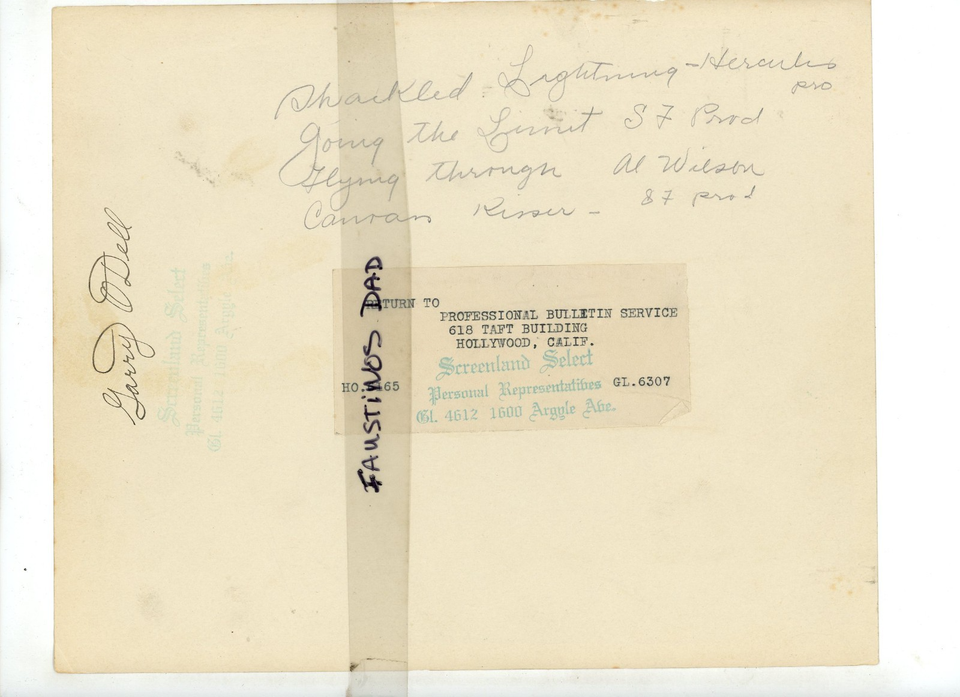 Shackled - Lightning - Hercules
pro
Going the Limit S F Prod
Flying through Al Wilson
Canvas Kisser - S F prod
Garry O'Dell
Screenland Select
Personal Representatives
Gl. 4612 1600 Argyle Ave.
FAUSTINOS DAD
RETURN TO
PROFESSIONAL BULLETIN SERVICE
618 TAFT BUILDING
HOLLYWOOD, CALIF.
Screenland Select
HO. GL.6307
Personal Representatives
Gl. 4612 1600 Argyle Ave.